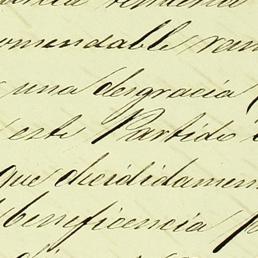 omendable
una desgracia
este Partido
que decididamen
beneficencia p